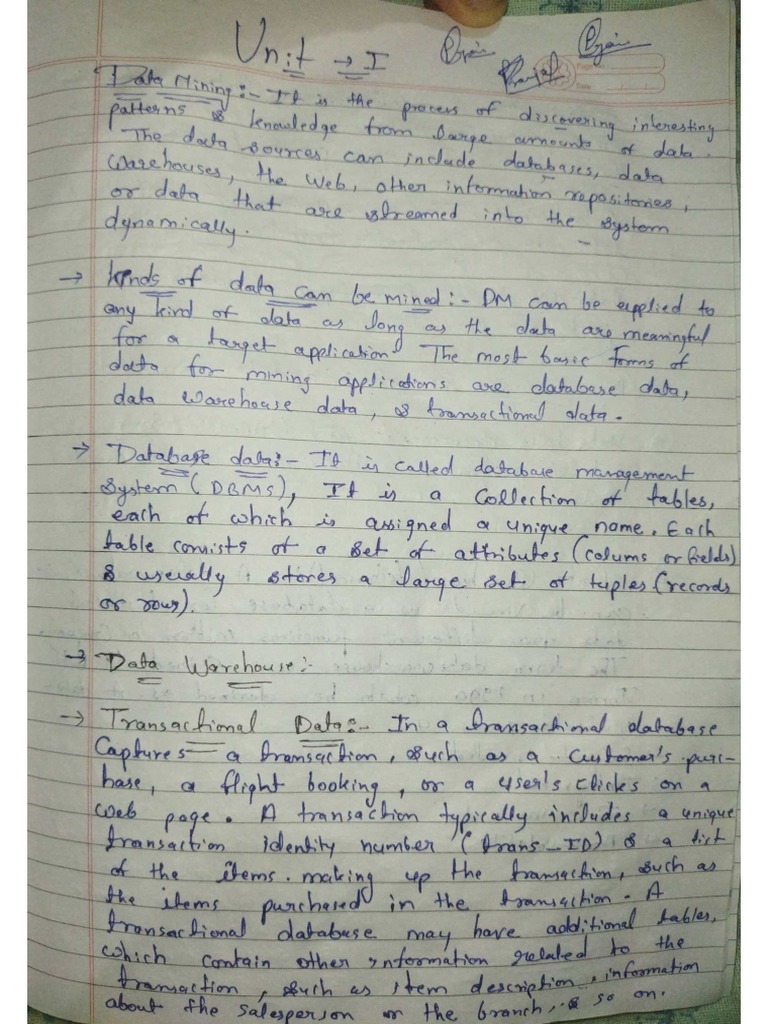 Unit → I
Data Mining:- It is the process of discovering interesting
patterns & knowledge from large amounts of data.
The data sources can include databases, data
Warehouses, the Web, other information repositories,
or data that are streamed into the system
dynamically.
→ Kinds of data can be mined:- DM can be applied to
any kind of data as long as the data are meaningful
for a target application. The most basic forms of
data for mining applications are database data,
data Warehouse data, & transactional data.
→ Database data:- It is called database management
System (DBMS), It is a Collection of tables,
each of which is assigned a unique name. Each
table consists of a set of attributes (colums or fields)
& usually, stores a large set of tuples (records
or rows).
→ Data Warehouse:-
→ Transactional Data:- In a transactional database
Captures a transaction, such as a customer's purc-
hase, a flight booking, or a user's clicks on a
web page. A transaction typically includes a unique
transaction identity number (trans_ID) & a list
of the items making up the transaction, such as
the items purchased in the transaction. A
transactional database may have additional tables,
which contain other information related to the
transaction, such as item description, information
about the salesperson or the branch, & so on.